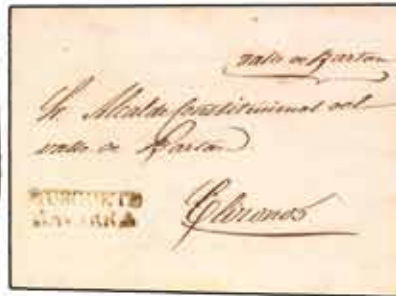 valle de Baztan
Sr. Alcalde Constitucional del
valle de Baztan
Elizondo
NAVARRA